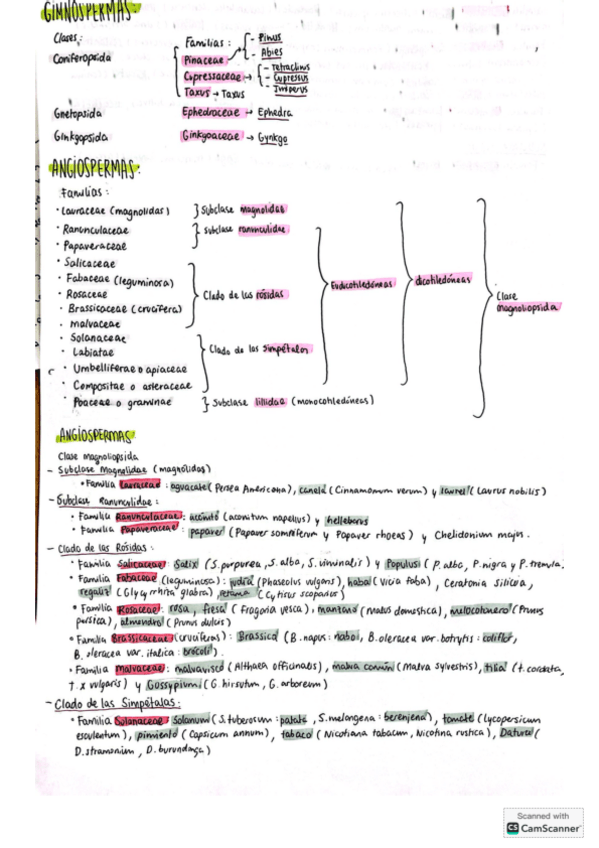 GIMNOSPERMAS:
Clases:
Familias:
- Pinus
- Abies
Coniferopsida
Pinaceae
Cupressaceae → - Tetraclinis
- Cupressus
- Juniperus
Taxus → Taxus
Gnetopsida Ephedraceae → Ephedra
Ginkgopsida Ginkgoaceae → Gynkgo
ANGIOSPERMAS:
Familias:
• Lauraceae (magnolidas) } Subclase magnolidas
• Ranunculaceae } subclase ranunculidae
• Papaveraceae
• Salicaceae
• Fabaceae (leguminosa)
• Rosaceae
• Brassicaceae (crucífera)
• malvaceae
Clado de las rósidas
• Solanaceae
• Labiatae
• Umbelliferae o apiaceae
• Compositae o asteraceae
Clado de las simpétalas
• Poaceae o graminae } Subclase liliidae (monocotiledóneas)
Eudicotiledóneas
dicotiledóneas
Clase
magnoliopsida
ANGIOSPERMAS
Clase magnoliopsida
- Subclase Magnolidae (magnólidas)
• Familia Lauraceae: aguacate (Persea Americana), canela (Cinnamomum verum) y laurel (Laurus nobilis)
- Subclase Ranunculidae:
• Familia Ranunculaceae: acónito (aconitum napellus) y helleborus
• Familia Papaveraceae: papaver (Papaver somniferum y Papaver rhoeas) y Chelidonium majus.
- Clado de las Rósidas:
• Familia Salicaceae: Salix (S. purpurea, S. alba, S. viminalis) y Populus (P. alba, P. nigra y P. tremula.
• Familia Fabaceae (leguminosa): judía (Phaseolus vulgaris), haba (Vicia faba), Ceratonia siliqua,
regaliz (Glycyrrhiza glabra), retama (Cytisus scoparius)
• Familia Rosaceae: rosa, fresa (Fragaria vesca), manzano (Malus domestica), melocotonero (Prunus
persica), almendro (Prunus dulcis)
• Familia Brassicaceae (crucíferas): Brassica (B. napus: nabo, B. oleracea var. botrytis: coliflor,
B. oleracea var. italica: brócoli).
• Familia malvaceae: malvavisco (Althaea officinalis), malva común (Malva sylvestris), tilia (t. cordata,
T. x vulgaris) y Gossypium (G. hirsutum, G. arboreum)
- Clado de las Simpétalas:
• Familia Solanaceae: Solanum (S. tuberosum: patata, S. melongena: berenjena), tomate (Lycopersicum
esculentum), pimiento (Capsicum annum), tabaco (Nicotiana tabacum, Nicotina rustica), Datura (
D. stramonium, D. burundanga)
Scanned with
CS CamScanner